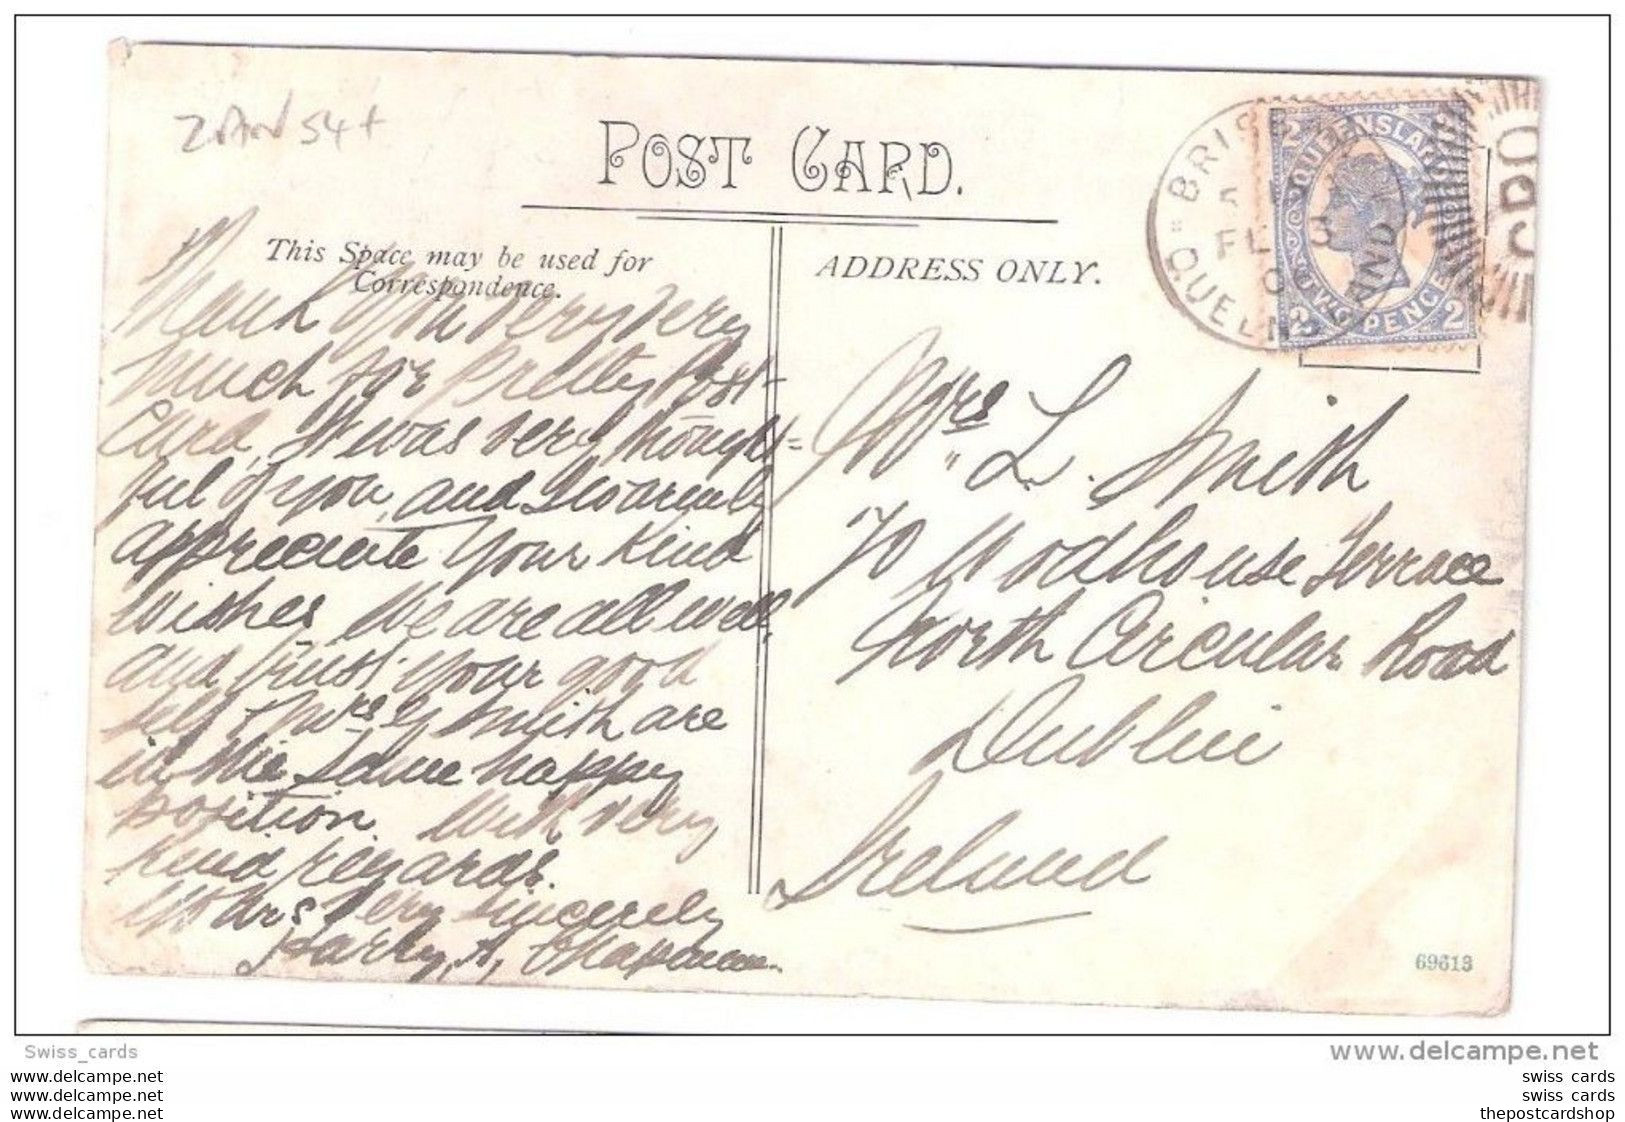 POST CARD.
This Space may be used for
Correspondence.
ADDRESS ONLY.
BRIS
QUEENSLAND
FE 3
GPO
QUEENSLAND
TWO PENCE
2 2
Thank you very very
much for pretty Post-
Card, It was very thought=
ful of you, and I sincerely
appreciate your kind
wishes We are all well,
and trust your good
self & Mrs G Smith are
in the same happy
position With very
kind regards.
Yours Very Sincerely
Harry, A, Chapman.
Mrs L. Smith
70 Woodhouse Terrace
North Circular Road
Dublin
Ireland
69613
Swiss_cards
www.delcampe.net
www.delcampe.net
www.delcampe.net
www.delcampe.net
swiss cards
swiss cards
thepostcardshop